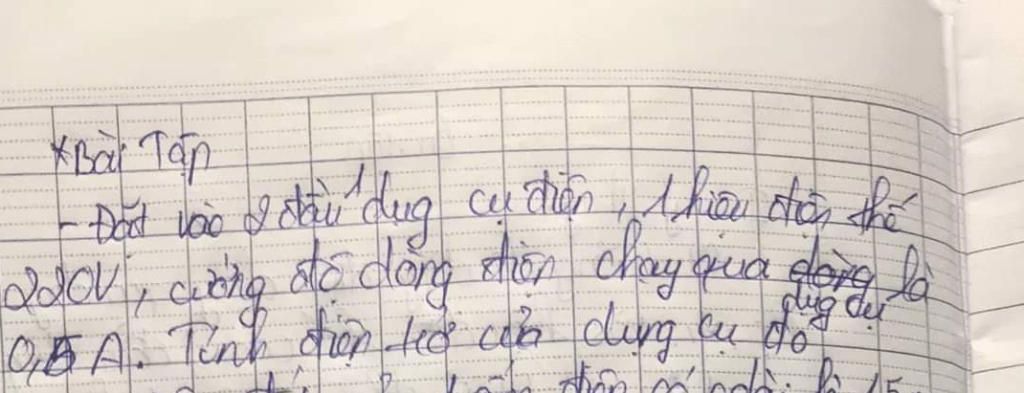 *Bài Tập
- Đặt vào 2 đầu 1 dug cụ điện, 1 hiệu điện thế
220V, cường độ dòng điện chạy qua là
dug dụ
0,5 A. Tính điện trở của dụng cụ đó